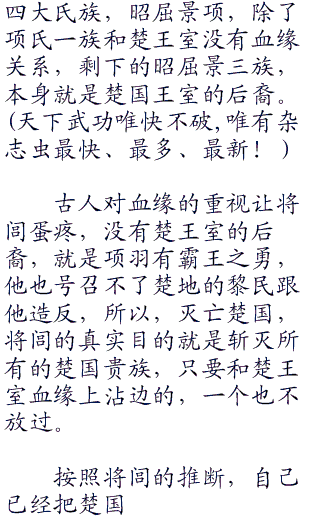 四大氏族，昭屈景项，除了
项氏一族和楚王室没有血缘
关系，剩下的昭屈景三族，
本身就是楚国王室的后裔。
(天下武功唯快不破,唯有杂
志虫最快、最多、最新！ )
古人对血缘的重视让将
闾蛋疼，没有楚王室的后
裔，就是项羽有霸王之勇，
他也号召不了楚地的黎民跟
他造反，所以，灭亡楚国，
将闾的真实目的就是斩灭所
有的楚国贵族，只要和楚王
室血缘上沾边的，一个也不
放过。
按照将闾的推断，自己
已经把楚国